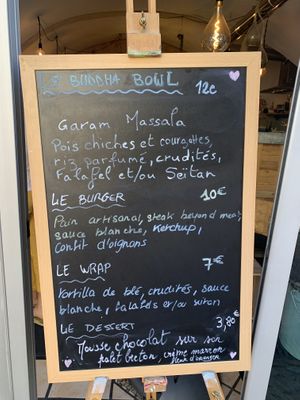 LE BUDDHA BOWL 12€
Garam Massala
Pois chiches et courgettes,
riz parfumé, crudités,
Falafel et/ou Seitan
LE BURGER 10€
Pain artisanal, steak beyond meat,
sauce blanche, Ketchup,
Confit d'oignons
LE WRAP 7€
Tortilla de blé, crudités, sauce
blanche, falafels et/ou seitan
LE DESSERT 3,80€
Mousse chocolat sur son
palet breton, crème marron
fleur d'oranger